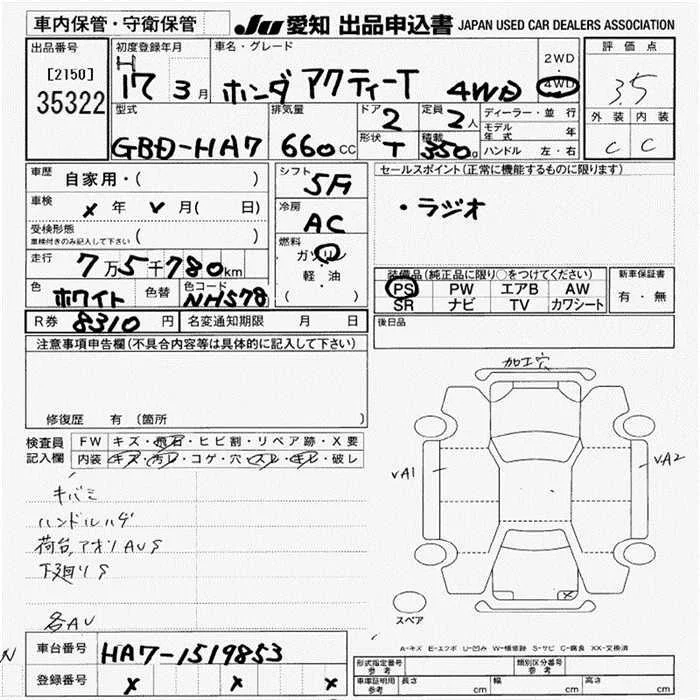 車内保管・守衛保管
JU 愛知 出品申込書 JAPAN USED CAR DEALERS ASSOCIATION
出品番号
[2150]
35322
初度登録年月
H
17 3月
車名・グレード
ホンダ アクティーT 4WD
2WD
・
4WD
評価点
3.5
外装 内装
C C
型式
GBD-HA7
排気量
660 CC
ドア
2
定員
2人
形状
T
積載
350g
ディーラー・並行
モデル年式 年
ハンドル 左・右
車歴
自家用・( )
車検
x 年 v 月( 日)
受検形態
車検付きのみ記入して下さい ( )
走行
7万5千780km
色
ホワイト
色替
色コード
NH578
シフト
5F
冷房
AC
燃料
ガソリン
軽・油
( )
R券 8310円
名変通知期限 月 日
セールスポイント(正常に機能するものに限ります)
・ラジオ
装備品(純正品に限り○をつけてください)
PS PW エアB AW
SR ナビ TV カワシート
新車保証書
有・無
後日品
注意事項申告欄(不具合内容等は具体的に記入して下さい)
修復歴 有 〔箇所 〕
検査員記入欄
FW キズ・飛石・ヒビ割・リペア跡・X要
内装 キズ・汚レ・コゲ・穴・スレ・キレ・破レ
キバミ
ハンドルハゲ
荷台,アオリAUS
下廻りS
各AU
加工穴
vA1
vA2
スペア
A-キズ E-エクボ U-凹み W-補修跡 S-サビ C-腐食 XX-交換済
N
車台番号 HA7-1519853
登録番号 x x x
形式指定番号
参考
類別区分番号
参考
車庫証明用
参考
長さ cm 幅 cm 高さ cm